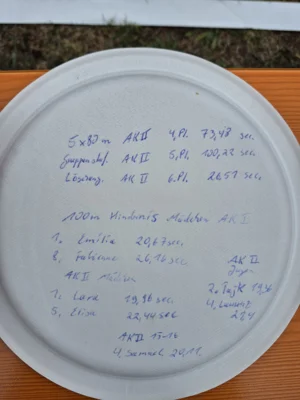 5x80m AK II 4.Pl. 73,48 sec.
Gruppenstaf. AK II 5.Pl. 100,22 sec
Löschang. AK II 6.Pl. 26,51 sec.
100m Hindernis Mädchen AK I
1. Emilia 20,67 sec.
8, Fabienne 26,16 sec
AK II Mädchen
1. Lara 19,96 sec.
5, Elisa 22,44 sec
AK II
Jungen
2. 19,56
4,
AK II 15-16
4, Samuel 20,11